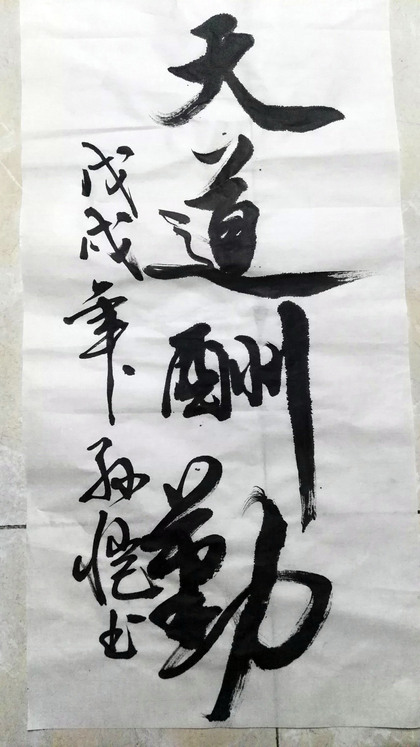 天道酬勤
戊戌年 孙恺书